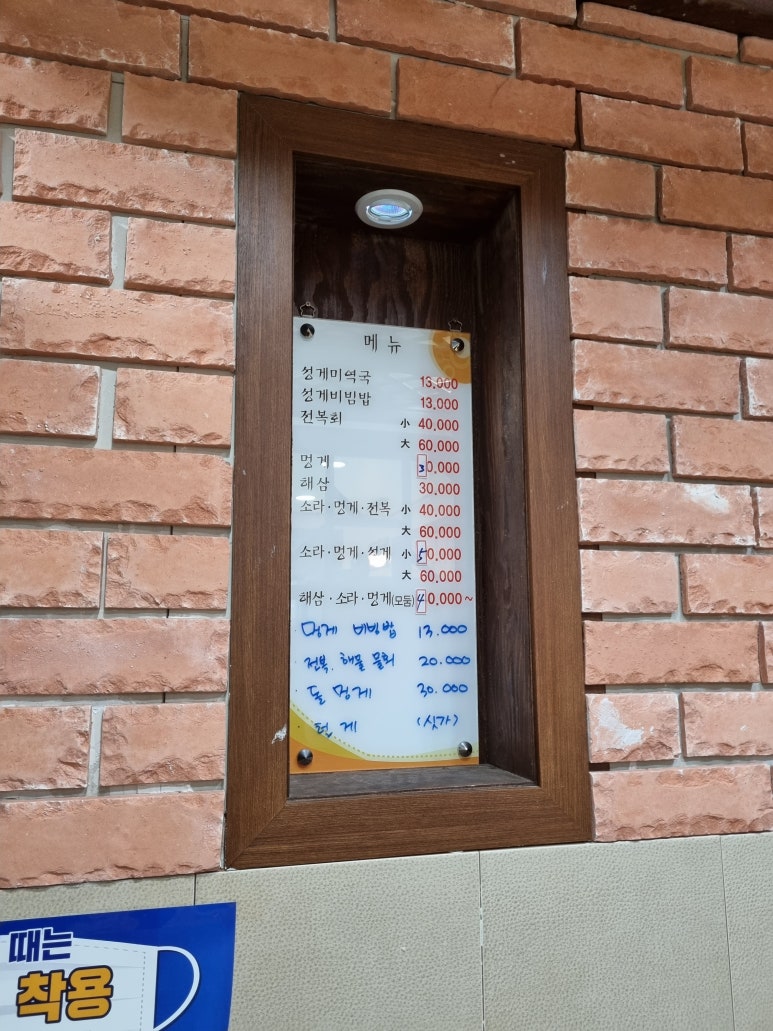 메뉴
성게미역국 13,000
성게비빔밥 13,000
전복회 小 40,000
大 60,000
멍게 30,000
해삼 30,000
소라·멍게·전복 小 40,000
大 60,000
소라·멍게·성게 小 50,000
大 60,000
해삼·소라·멍게(모둠) 40,000~
멍게 비빔밥 13.000
전복. 해물 물회 20.000
· 돌 멍게 30.000
· 털 게 (싯가)
때는
착용